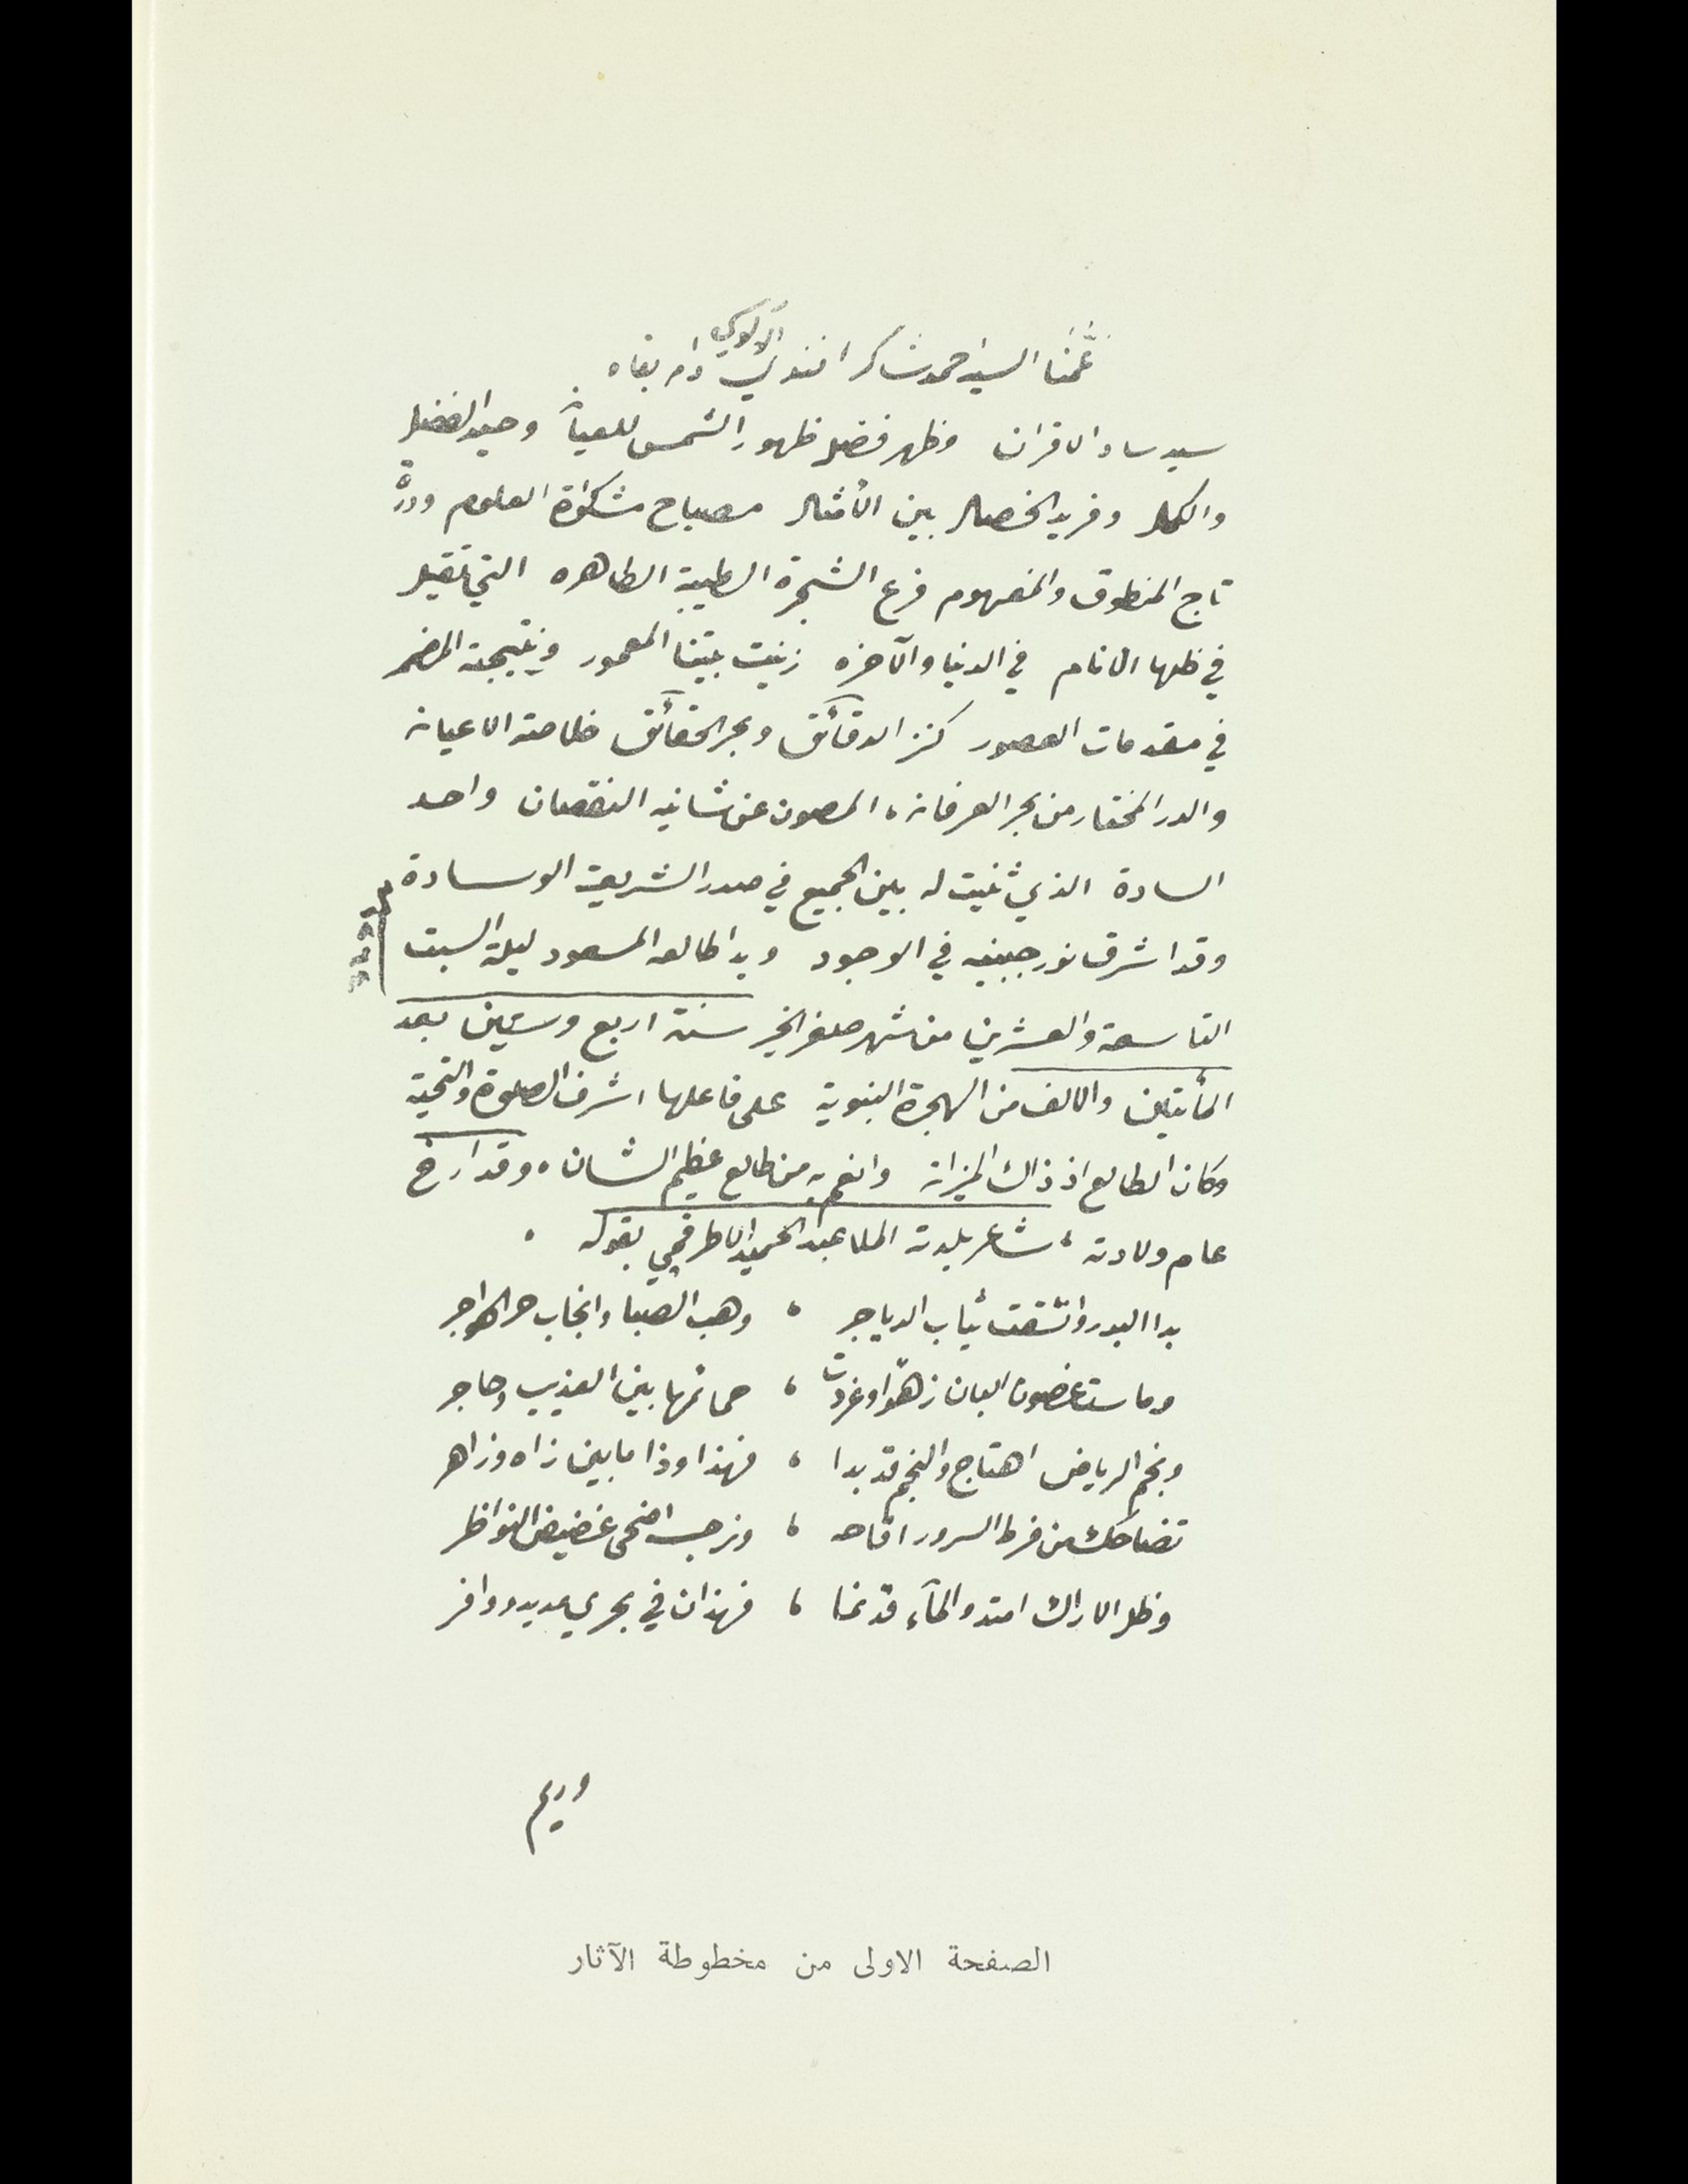 عمنا السيد احمد شاكر افندي الآلوسي دام بقاه
سيد ساد الاقران وظهر فضله ظهور الشمس للعيان وحيد الفضل
والكمال وفريد الخصال بين الأمثال مصباح مشكوة العلوم ودرة
تاج المنطوق والمفهوم فرع الشجرة الطيبة الطاهره التي تقيل
في ظلها الانام في الدنيا والآخره زينت بيتنا المعمور ونتيجة
في مقدمات العصور كنز الدقائق وبحر الحقائق خلاصة الاعيان
والدر المختار من بحر العرفان، المصون عن شائبه النقصان واحد
السادة الذي ثنيت له بين الجميع في صدر الشريعة الوسادة
وقد اشرق نور جبينه في الوجود وبدا طالعه المسعود ليلة السبت
التاسعة والعشرين من شهر صفر الخير سنة اربع وستين بعد
المأتين والالف من الهجرة النبوية على فاعلها اشرف الصلوة والتحية
وكان الطالع اذ ذاك الميزان وانعم به من طالع عظيم الشان ، وقد ارخ
عام ولادته ، شاعر بلدته الملا عبد الحميد الاطرقجي بقوله ،
بدا البدر وانشقت ثياب الدياجر ، وهب الصبا وانجاب حر الهواجر
وماست غصون البان زهوا وغردت ، حمائمها بين العذيب وحاجر
ونجم الرياض اهتاج والنجم قد بدا ، فهذا وذا ما بين زاه وزاهر
تضاحك من فرط السرور اقاحه ، ونرجسه اضحى غضيض النواظر
وظل الاراك امتد والمآء قد نما ، فهذان في بحري مديد ووافر
الصفحة الاولى من مخطوطة الآثار